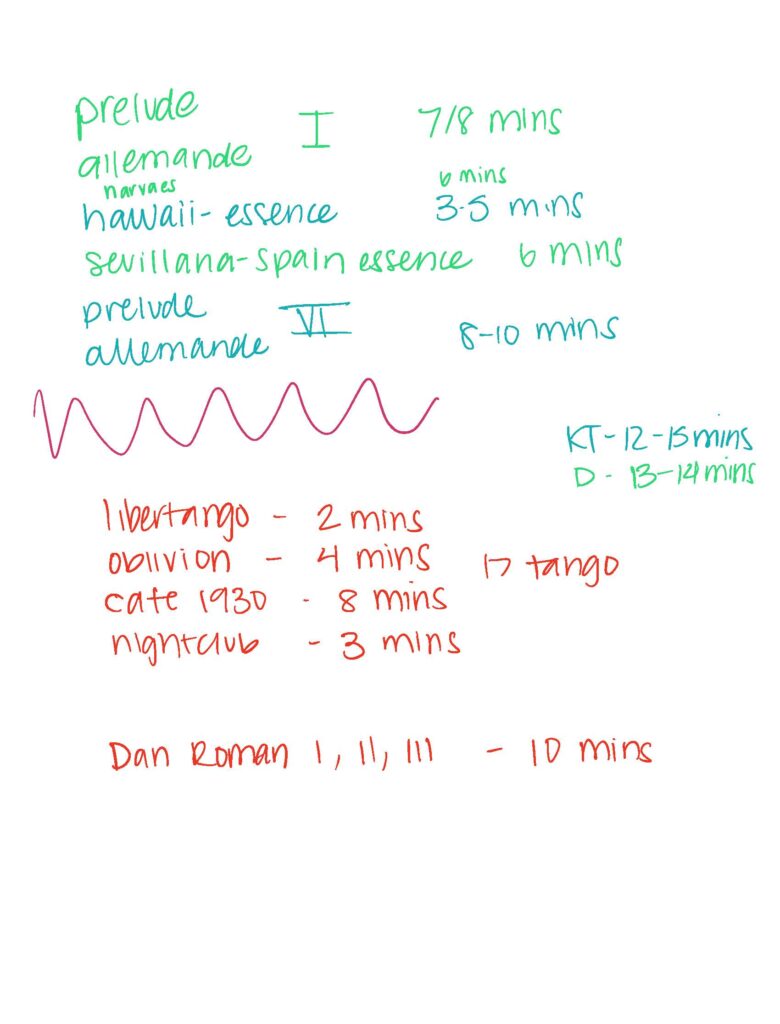 prelude
allemande I 7/8 mins
narvaes 6 mins
hawaii- essence 3-5 mins
sevillana-spain essence 6 mins
prelude
allemande VI 8-10 mins
KT-12-15mins
D - 13-14mins
libertango - 2 mins
oblivion - 4 mins 17 tango
cafe 1930 - 8 mins
nightclub - 3 mins
Dan Roman I, II, III - 10 mins